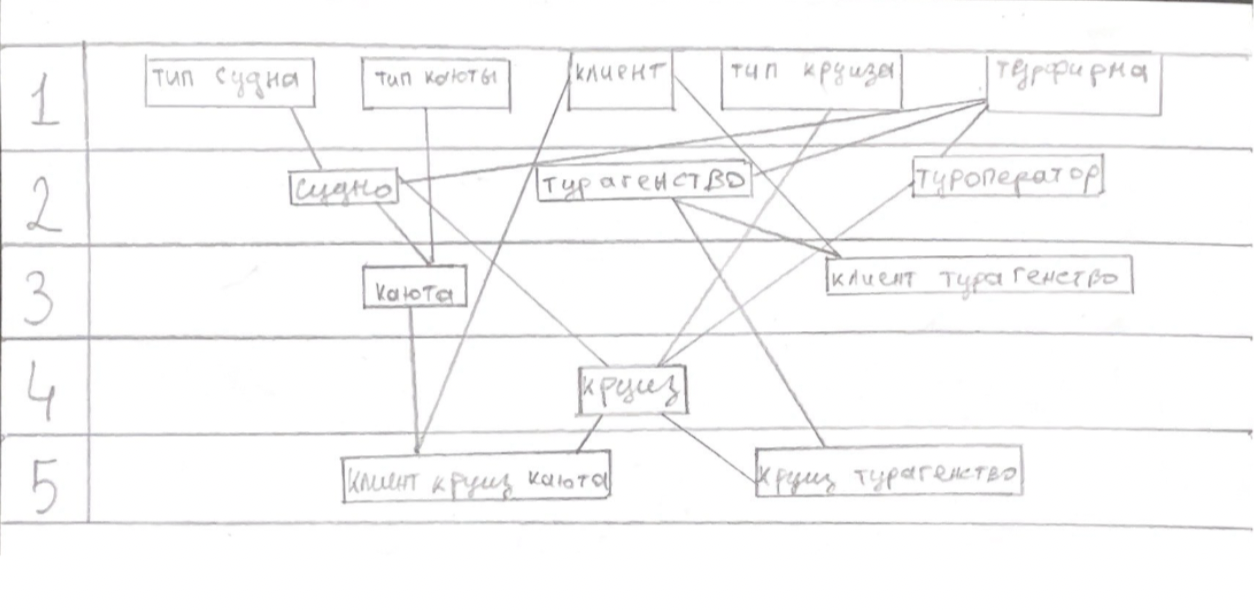 1
тип судна
тип каюты
клиент
тип круиза
турфирма
2
судно
турагенство
туроператор
3
каюта
клиент турагенство
4
круиз
5
клиент круиз каюта
круиз турагенство